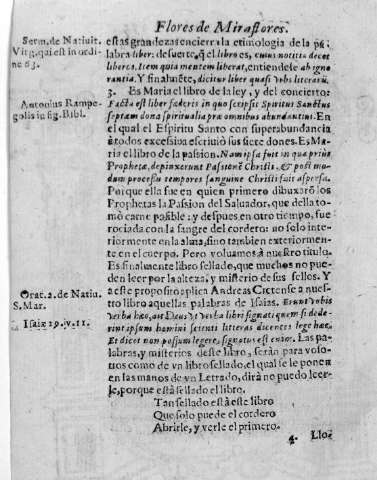 Flores de Miraflores.
Serm. de Natiuit.
Virg. qui est in ordi
ne 63.
estas grandezas encierra la etimologia de la pa
labra liber: de suerte, q̃ el libro es, cuius notitia docet
liberos. Item quia mentem liberat, entiendele ab igno
rantia. Y finalmẽte, dicitur liber quasi orbis literarũ.
3. Es Maria el libro de la ley, y del concierto:
Antonius Rampe-
golis in fig. Bibl.
Facta est liber fœderis in quo scripsit Spiritus Sanctus
septem dona spiritualia præ omnibus abundantius. En
el qual el Espiritu Santo con superabundancia
à todos excessiua escriuiò sus siete dones. Es Ma-
ria el libro de la passion. Nam ipsa fuit in qua prius
Prophetæ, depinxerunt Passionẽ Christi, & post mu
dum processu temporis sanguine Christi fuit aspersa.
Porque ella fue en quien primero dibuxarõ los
Prophetas la Passion del Saluador, que della to-
mò carne passible: y despues en otro tiempo, fue
rociada con la sangre del cordero: no solo inte
riormente en la alma, sino tambien exteriormen-
te en el cuerpo. Pero voluamos à nuestro titulo.
Es finalmente libro sellado, que muchos no pue-
den leer por la alteza, y misterio de sus sellos. Y
Orat. 2. de Natiu.
S. Mar.
a este proposito aplica Andreas Cretense a nues-
tro libro aquellas palabras de Isaias. Erunt vobis
Isaiæ 29. v. 11.
verba hæc, aut Deus vt verba libri signati quem si dede-
rint ipsum homini scienti litteras dicentes lege hæc.
Et dicet non possum legere, signatus est enim. Las pa-
labras, y misterios deste libro, seràn para voso-
tros como de vn libro sellado, el qual se le ponen
en las manos de vn Letrado, dirà no puedo leer-
le, porque està sellado el libro.
Tan sellado està este libro
Que solo puede el cordero
Abrirle, y verle el primero.
4. Llo-